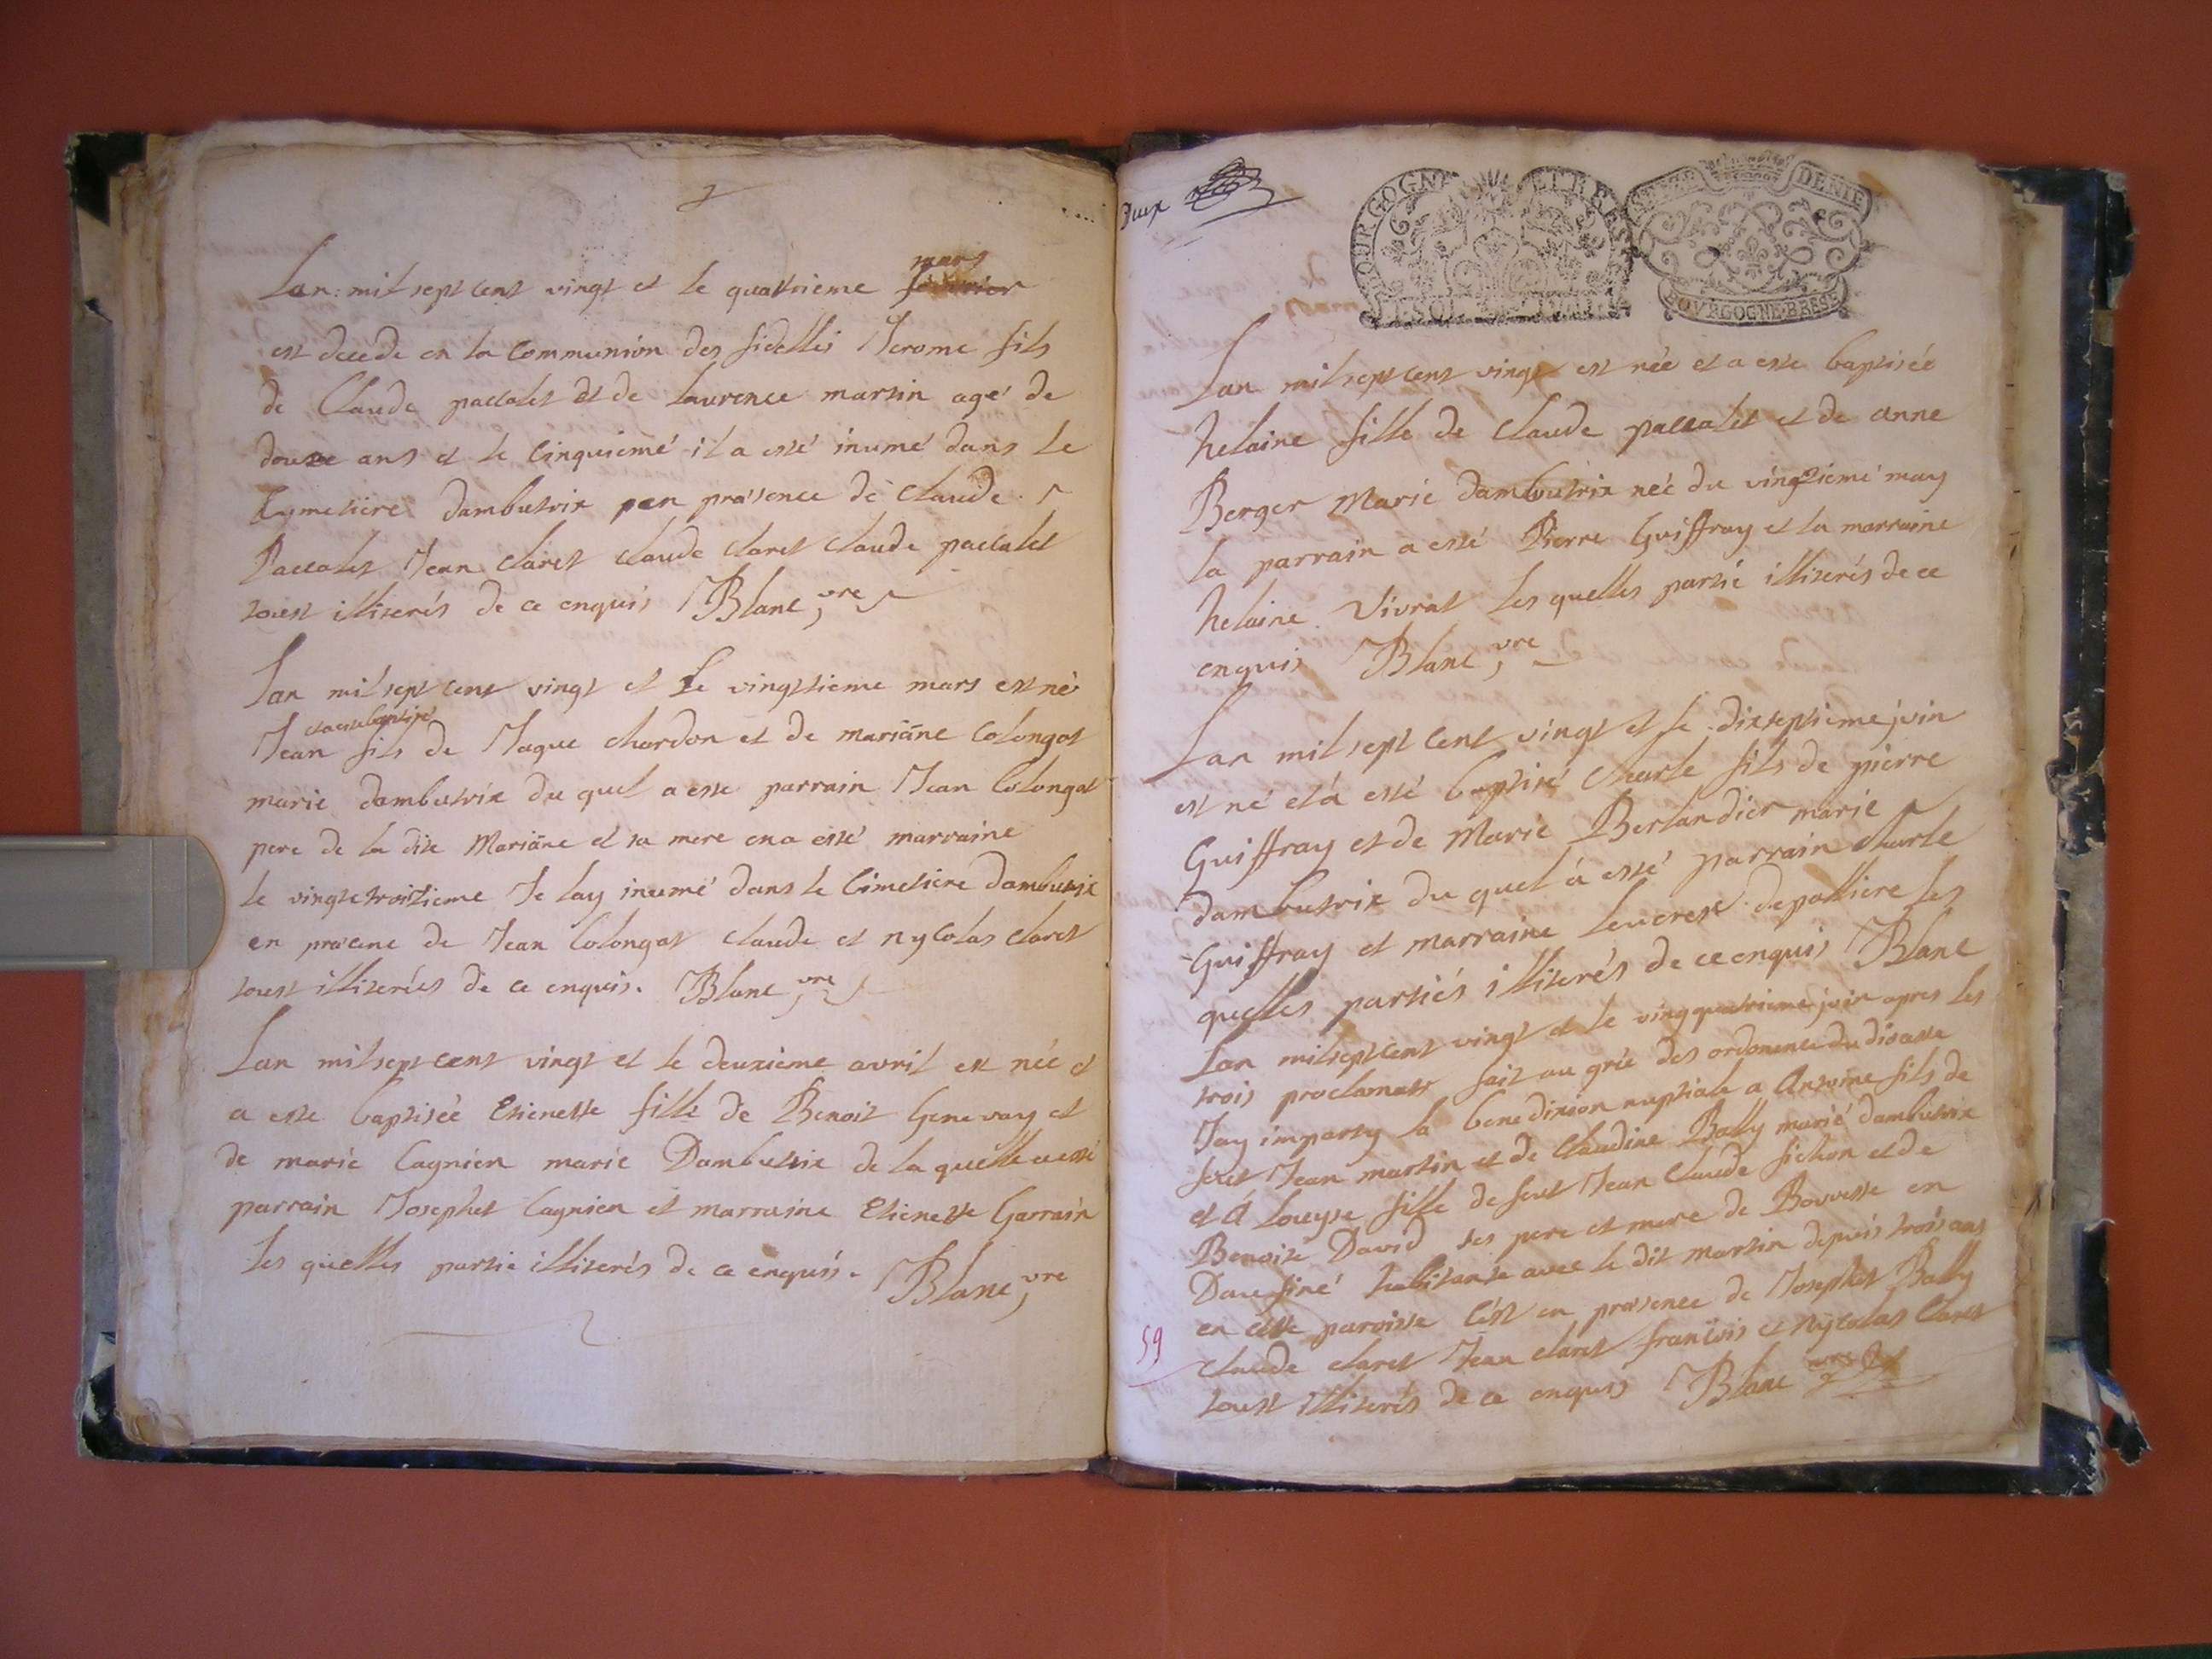 2
mars
Lan: mil sept cent vingt et le quattrieme fevrier
est decede en la Communion des fidelles Jerome fils
de Claude paccalet et de Laurence martin age de
douze ans et le Cinquieme il a esté inumé dans le
Cymetiere dambutrix pen présence de Claude
Paccalet Jean Claret Claude Claret Claude paccalet
toust illiterés de ce enquis Blanc, vre
Lan mil sept cent vingt et Le vingttieme mars est né
et a esté baptisé
Jean fils de Jaque chardon et de mariane Colongat
marie dambutrix du quel a esse parrain Jean Colongat
pere de la dite Mariane et sa mere en a essé marraine
le vingtetroitieme Je lay inumé dans le Cimetiere dambutrix
en présene de Jean Colongat claude et nycolas claret
toust illiterées de ce enquis. Blanc, vre
Lan mil sept cent vingt et le deuxieme avril est née et
a este baptisée Etienette fille de Benoit Genevay et
de marie Cagnien marie Dambutrix de la quelle a essé
parrain Josephet Cagnien et marraine Etienette Garrain
Les quelles partie illiterés de ce enquis. Blanc, vre
Deux
BOURGOGNE ET BRESSE
DENIE
BOVRGOGNE·BRESE
Lan mil sept cent vingt est née et a este baptisée
helaine fille de Claude paccalet et de anne
Berger Marie dambutrix née du vingtieme may
la parrain a essé Pierre Guiffray et la marraine
helaine Vivrat Les quelles partie illiterés de ce
enquis Blanc, vre
Lan mil sept Cent vingt et le dixseptieme juin
est né et à essé baptisé Charle fils de pierre
Guiffray et de Marie Berlandier marie
dambutrix du quel à essé parrain Charle
Guiffray et marraine Leucresse depalliere les
quelles partiés illiterés de ce enquis Blanc
Lan mil sept cent vingt et le vingquatrieme juin apres les
trois proclamats fait au grée des ordonence du diosasse
Jay imparty la benedixion nuptiale a Antoine fils de
feut Jean martin et de Claudine Bally marié dambutrix
et à Louyse fille de feut Jean Claude fichon et de
Benoite David ses pere et mere de Bouvesse en
Daufiné habitante avec le dit martin depuis trois ans
en cette paroisse Cest en présence de Josephet Bally
59
claude claret Jean claret francois et Nycolas Claret
toust illiterés de ce enquis Blanc